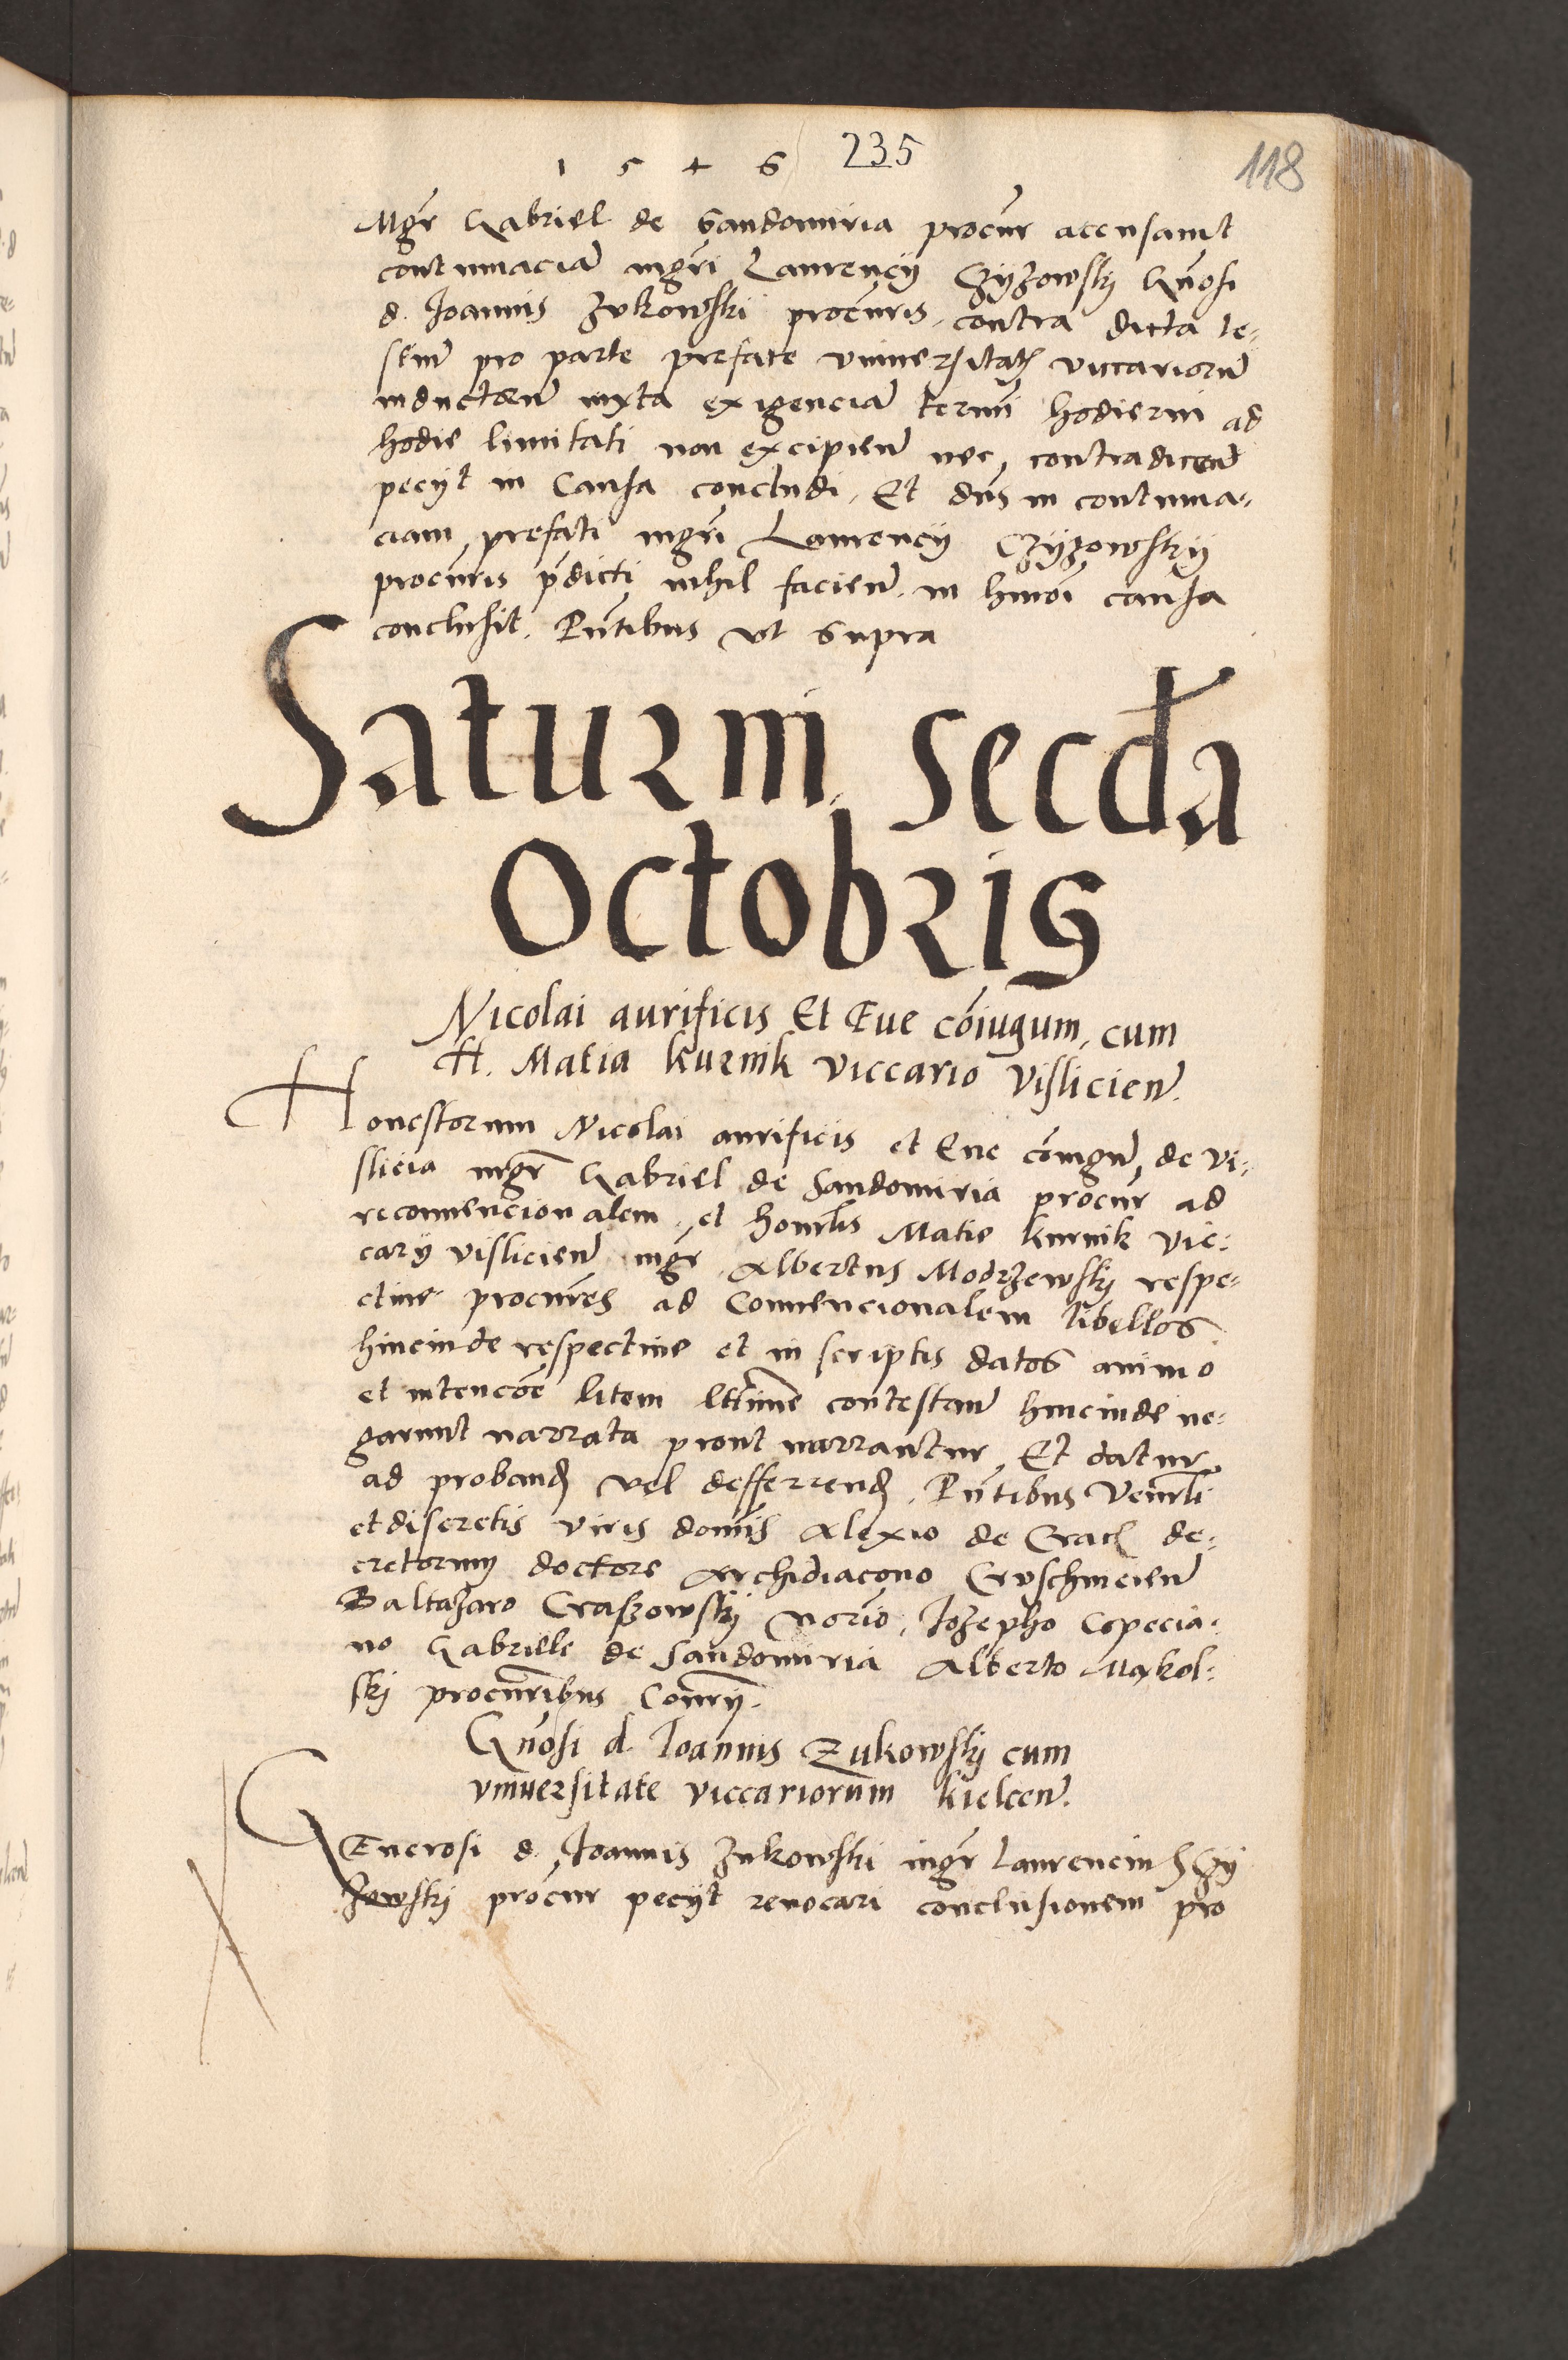 1 5 4 6 235
118
Mgr̃ Gabriel de Sandomiria procur̃ accusavit
contumaciã mgr̃i Laurencÿ Czyzowskj Gñosi
d. Joannis Zvkowski procuris, contra dicta te-
stiũ pro parte prefate vniuersitatis viccariorũ
inductorũ iuxta exigenciã termi hodierni ad
hodie limitati non excipieñ nec contradiceñ
pecÿt in causa concludi, Et dñs in contuma-
ciam prefati mgr̃i Laurencÿ Czyzowskÿ
procuris p̃dicti nihil facieñ. in hmoi causa
conclusit. Pñtibus vt supra
Saturni secda
Octobris
Nicolai aurificis Et Eue coniugum, cum
H. Matia kurnik viccario visliciẽn.
Honestorum Nicolai aurificis et Eue coniugũ, de vi-
slicia mgr̃ Gabriel de Sandomiria procur̃ ad
reconuencionalem, et honrlis Matie kurnik vic-
carÿ visliciẽn mgr̃ Albertus Modrzewskj respe-
ctiue procures ad Conuencionalem libellos
hincinde respectiue et in scriptis datos animo
et intencõe litem lttime contestañ hincinde ne-
garunt narrata prout narrantur, Et datur
ad proband vel defferrend. Pñtibus Venrli
et discretis viris domis Alexio de Crac de-
cretorum doctore Archidiacono Cruschvicieñ
Baltazaro Craszowskj norio, Jozepho Copecia-
no Gabriele de Sandomiria Alberto Mykol-
skj procuribus Conrÿ.
Gñosi d. Joannis Zukowskj cum
vniuersitate viccariorum kielceñ.
GEnerosi d. Joannis Zukowski mgr̃ Laurencius Czÿ
zowskj procur pecÿt reuocari conclusionem pro